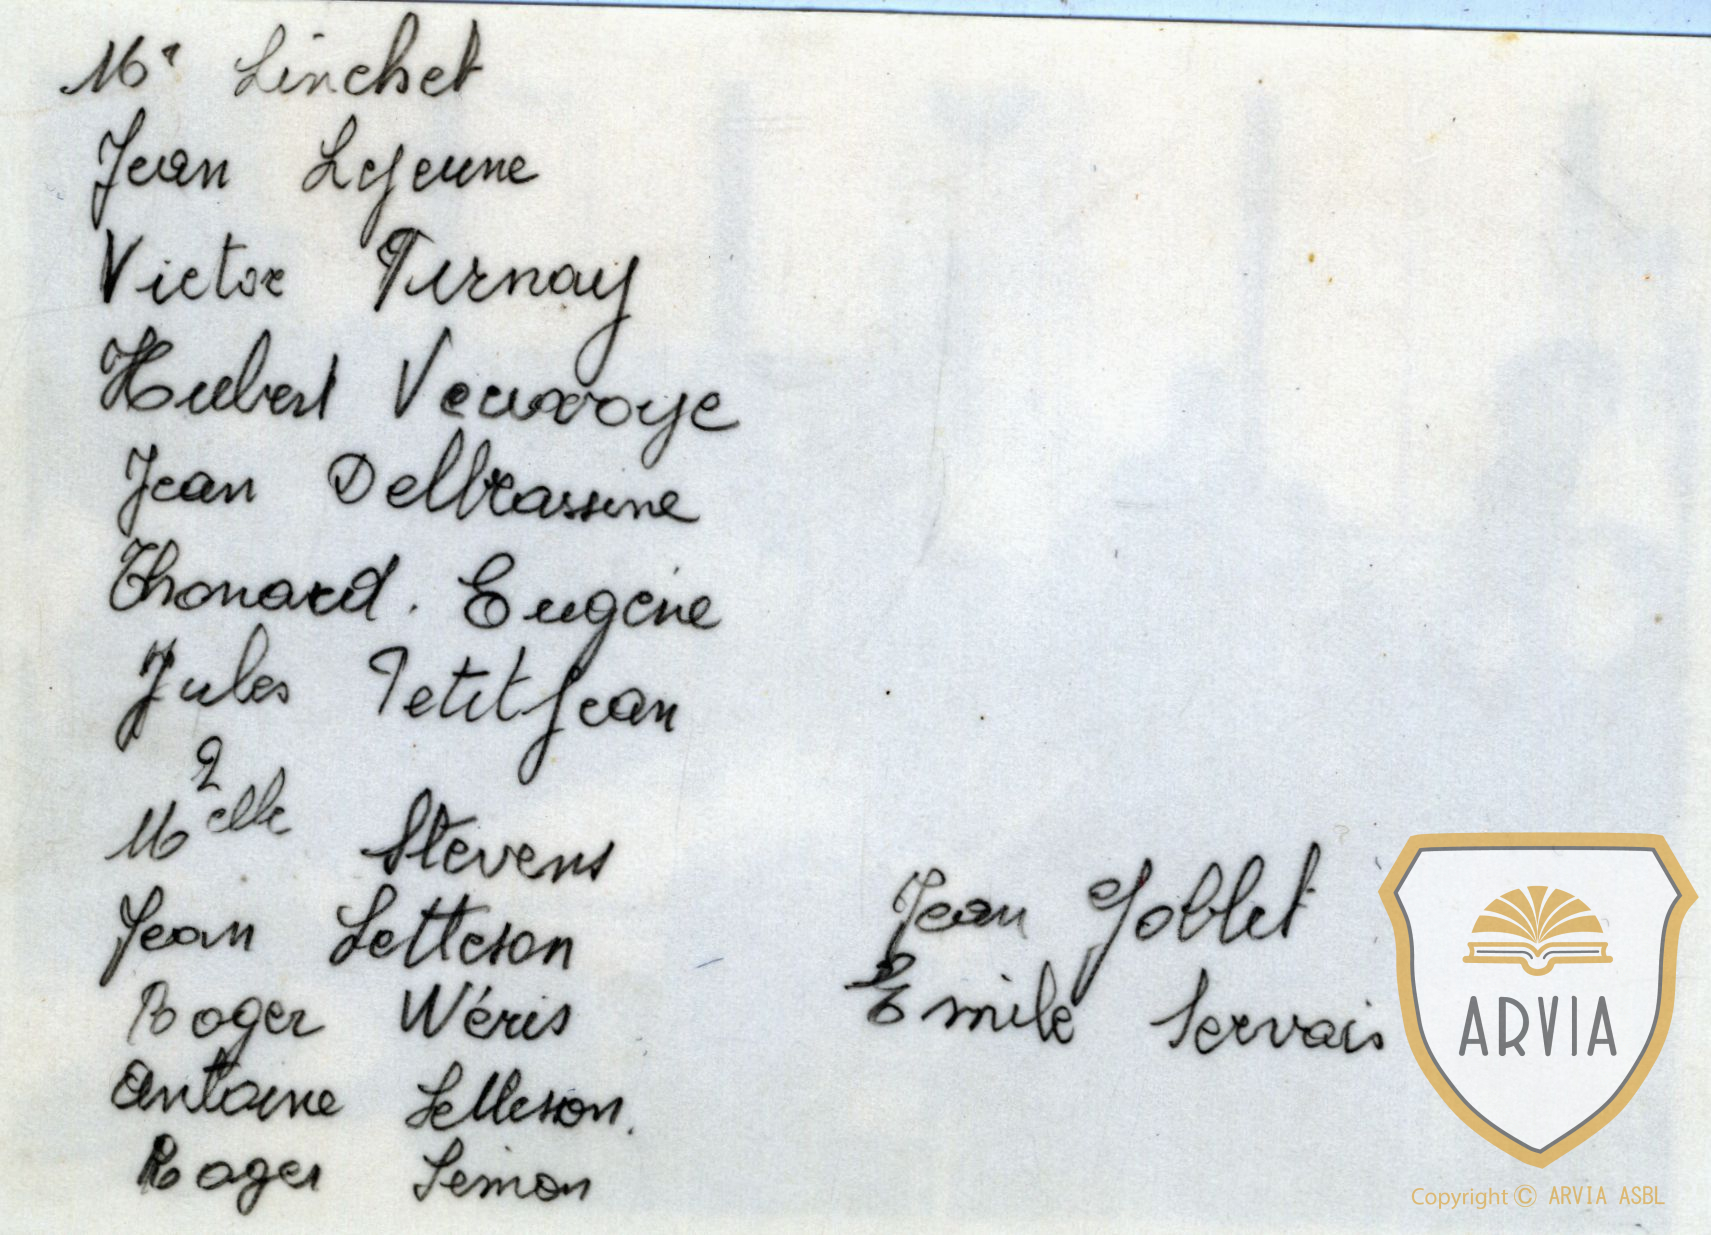 Mr Linchet
Jean Lejeune
Victor Ternay
Hubert Veuxroye
Jean Delbrassine
Thonard. Eugène
Jules Petitjean
2
Melle Stevens
Jean Letteson
Roger Wéris
Antoine Letteson.
Roger Simon
Jean Joblet
Emile Servais
ARVIA
Copyright © ARVIA ASBL